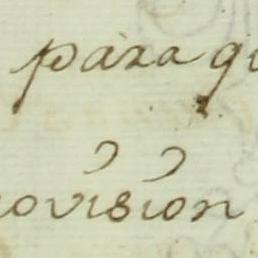 para q
ovision